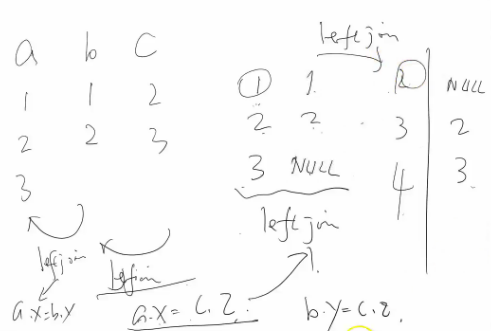 left join
a b c
1 1 2 ① 1 2 NULL
2 2 3 2 2 3 2
3 3 NULL 4 3
left join
left join
left join
a.x=b.y a.x=c.z b.y=c.z